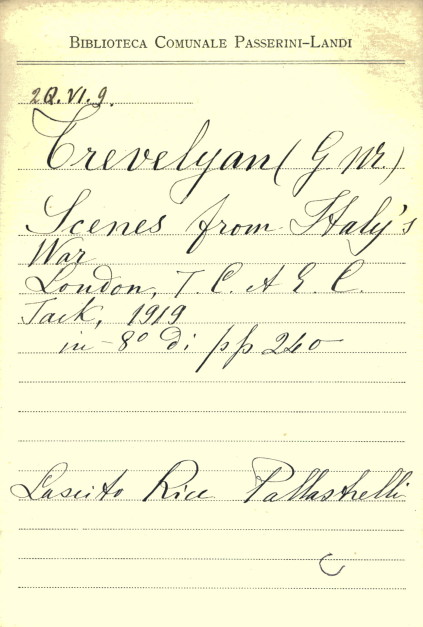 BIBLIOTECA COMUNALE PASSERINI-LANDI
2Q.VI.9.
Trevelyan (G. M.)
Scenes from Italy's
War
London, T. C. A E. C.
Jack, 1919
in-8º di pp 240
Lascito Rice Pallastrelli